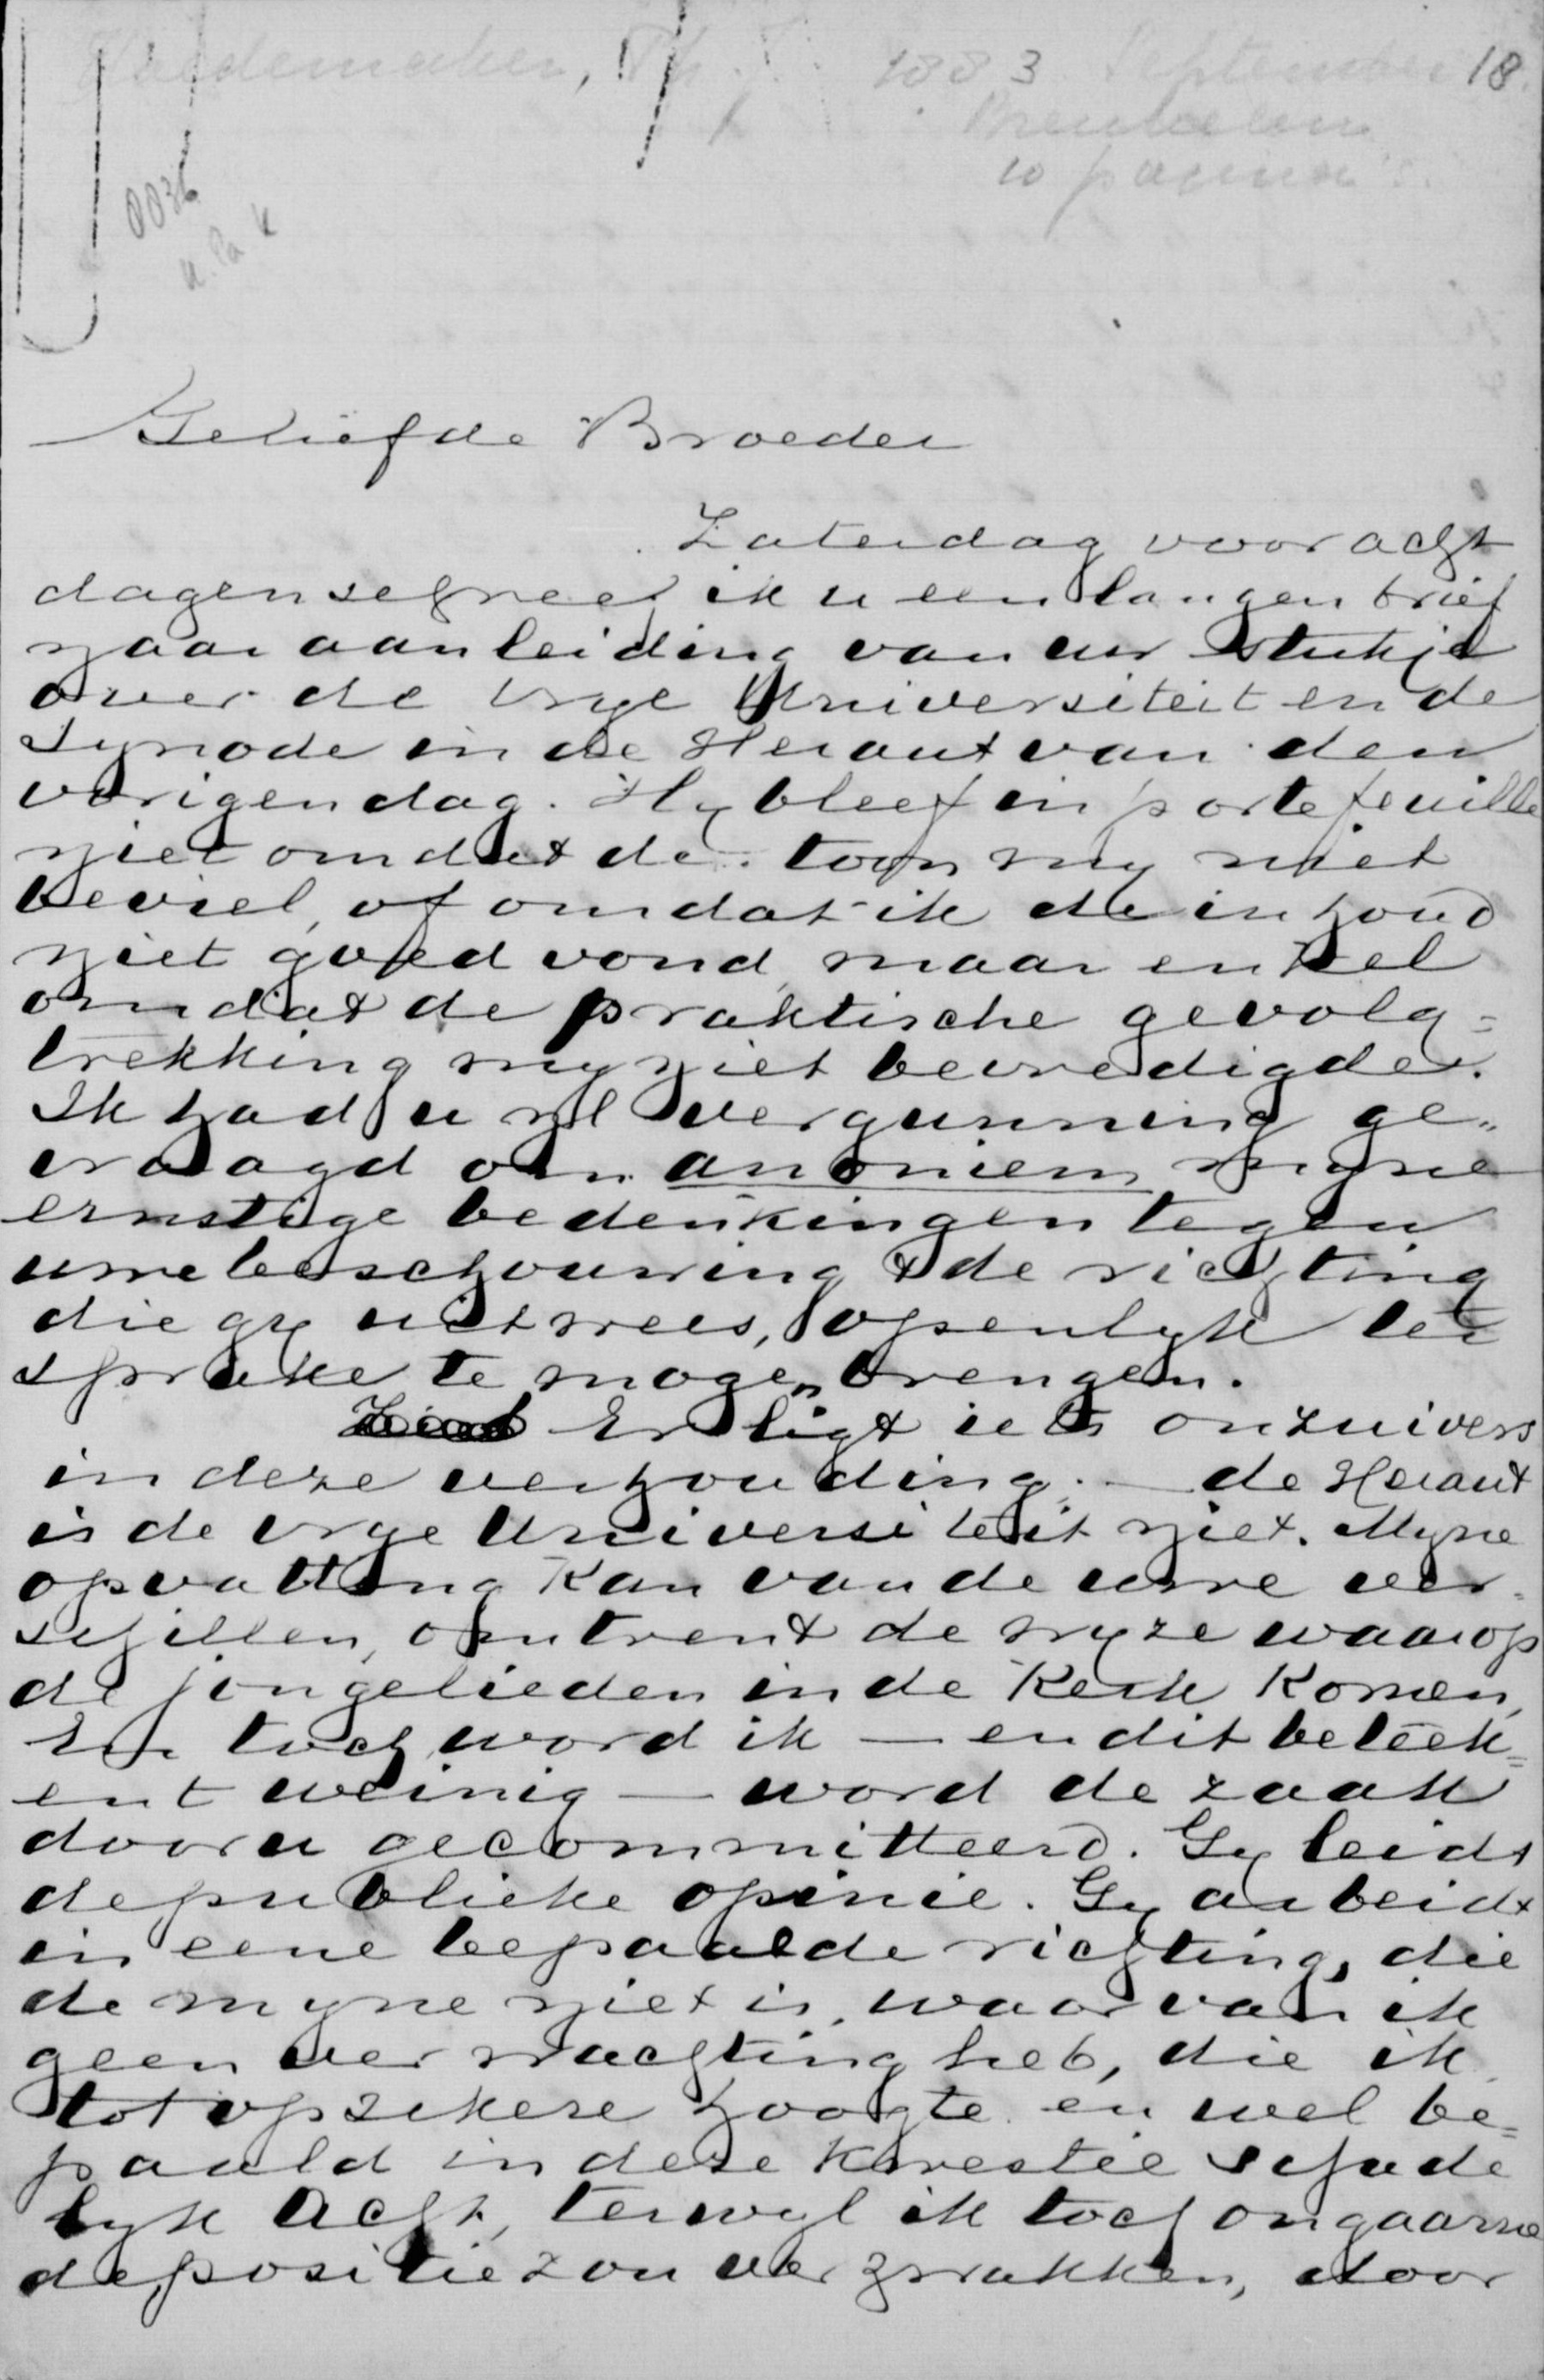 Hoedemaker, Ph. J. 1883 September 18.
Breukelen
10 pagina's.
0036
Geliefde Broeder
Zaterdag voor acht
dagen schreef ik u een langen brief
naar aanleiding van uw stukje
over de Vrye Universiteit en de
Synode in de Heraut van den
vorigen dag. Hy bleef in portefeuille
niet omdat de toon my niet
beviel, of omdat ik de inhoud
niet goed vond, maar enkel
omdat de praktische gevolg=
trekking my niet bevredigde.
Ik had u nl vergunning ge=
vraagd om anoniem myne
ernstige bedenkingen tegen
uwe beschouwing & de richting
die gy uitwees, openlyk ter
sprake te mogen brengen.
Er ligt iets onzuivers
in deze verhouding. — de Heraut
is de vrye Universiteit niet. Myne
opvatting kan van de uwe ver=
schillen, omtrent de wyze waarop
de jongelieden in de Kerk komen,
En toch word ik — en dit beteek=
ent weinig — word de zaak
door u gecommitteerd. Gy leidt
de publieke opinie. Gy arbeidt
in eene bepaalde richting, die
de myne niet is, waarvan ik
geen verwachting heb, die ik
tot op zekere hoogte en wel be=
paald in deze kwestie schade
lyk acht, terwyl ik toch ongaarne
de positie zou verzwakken, door